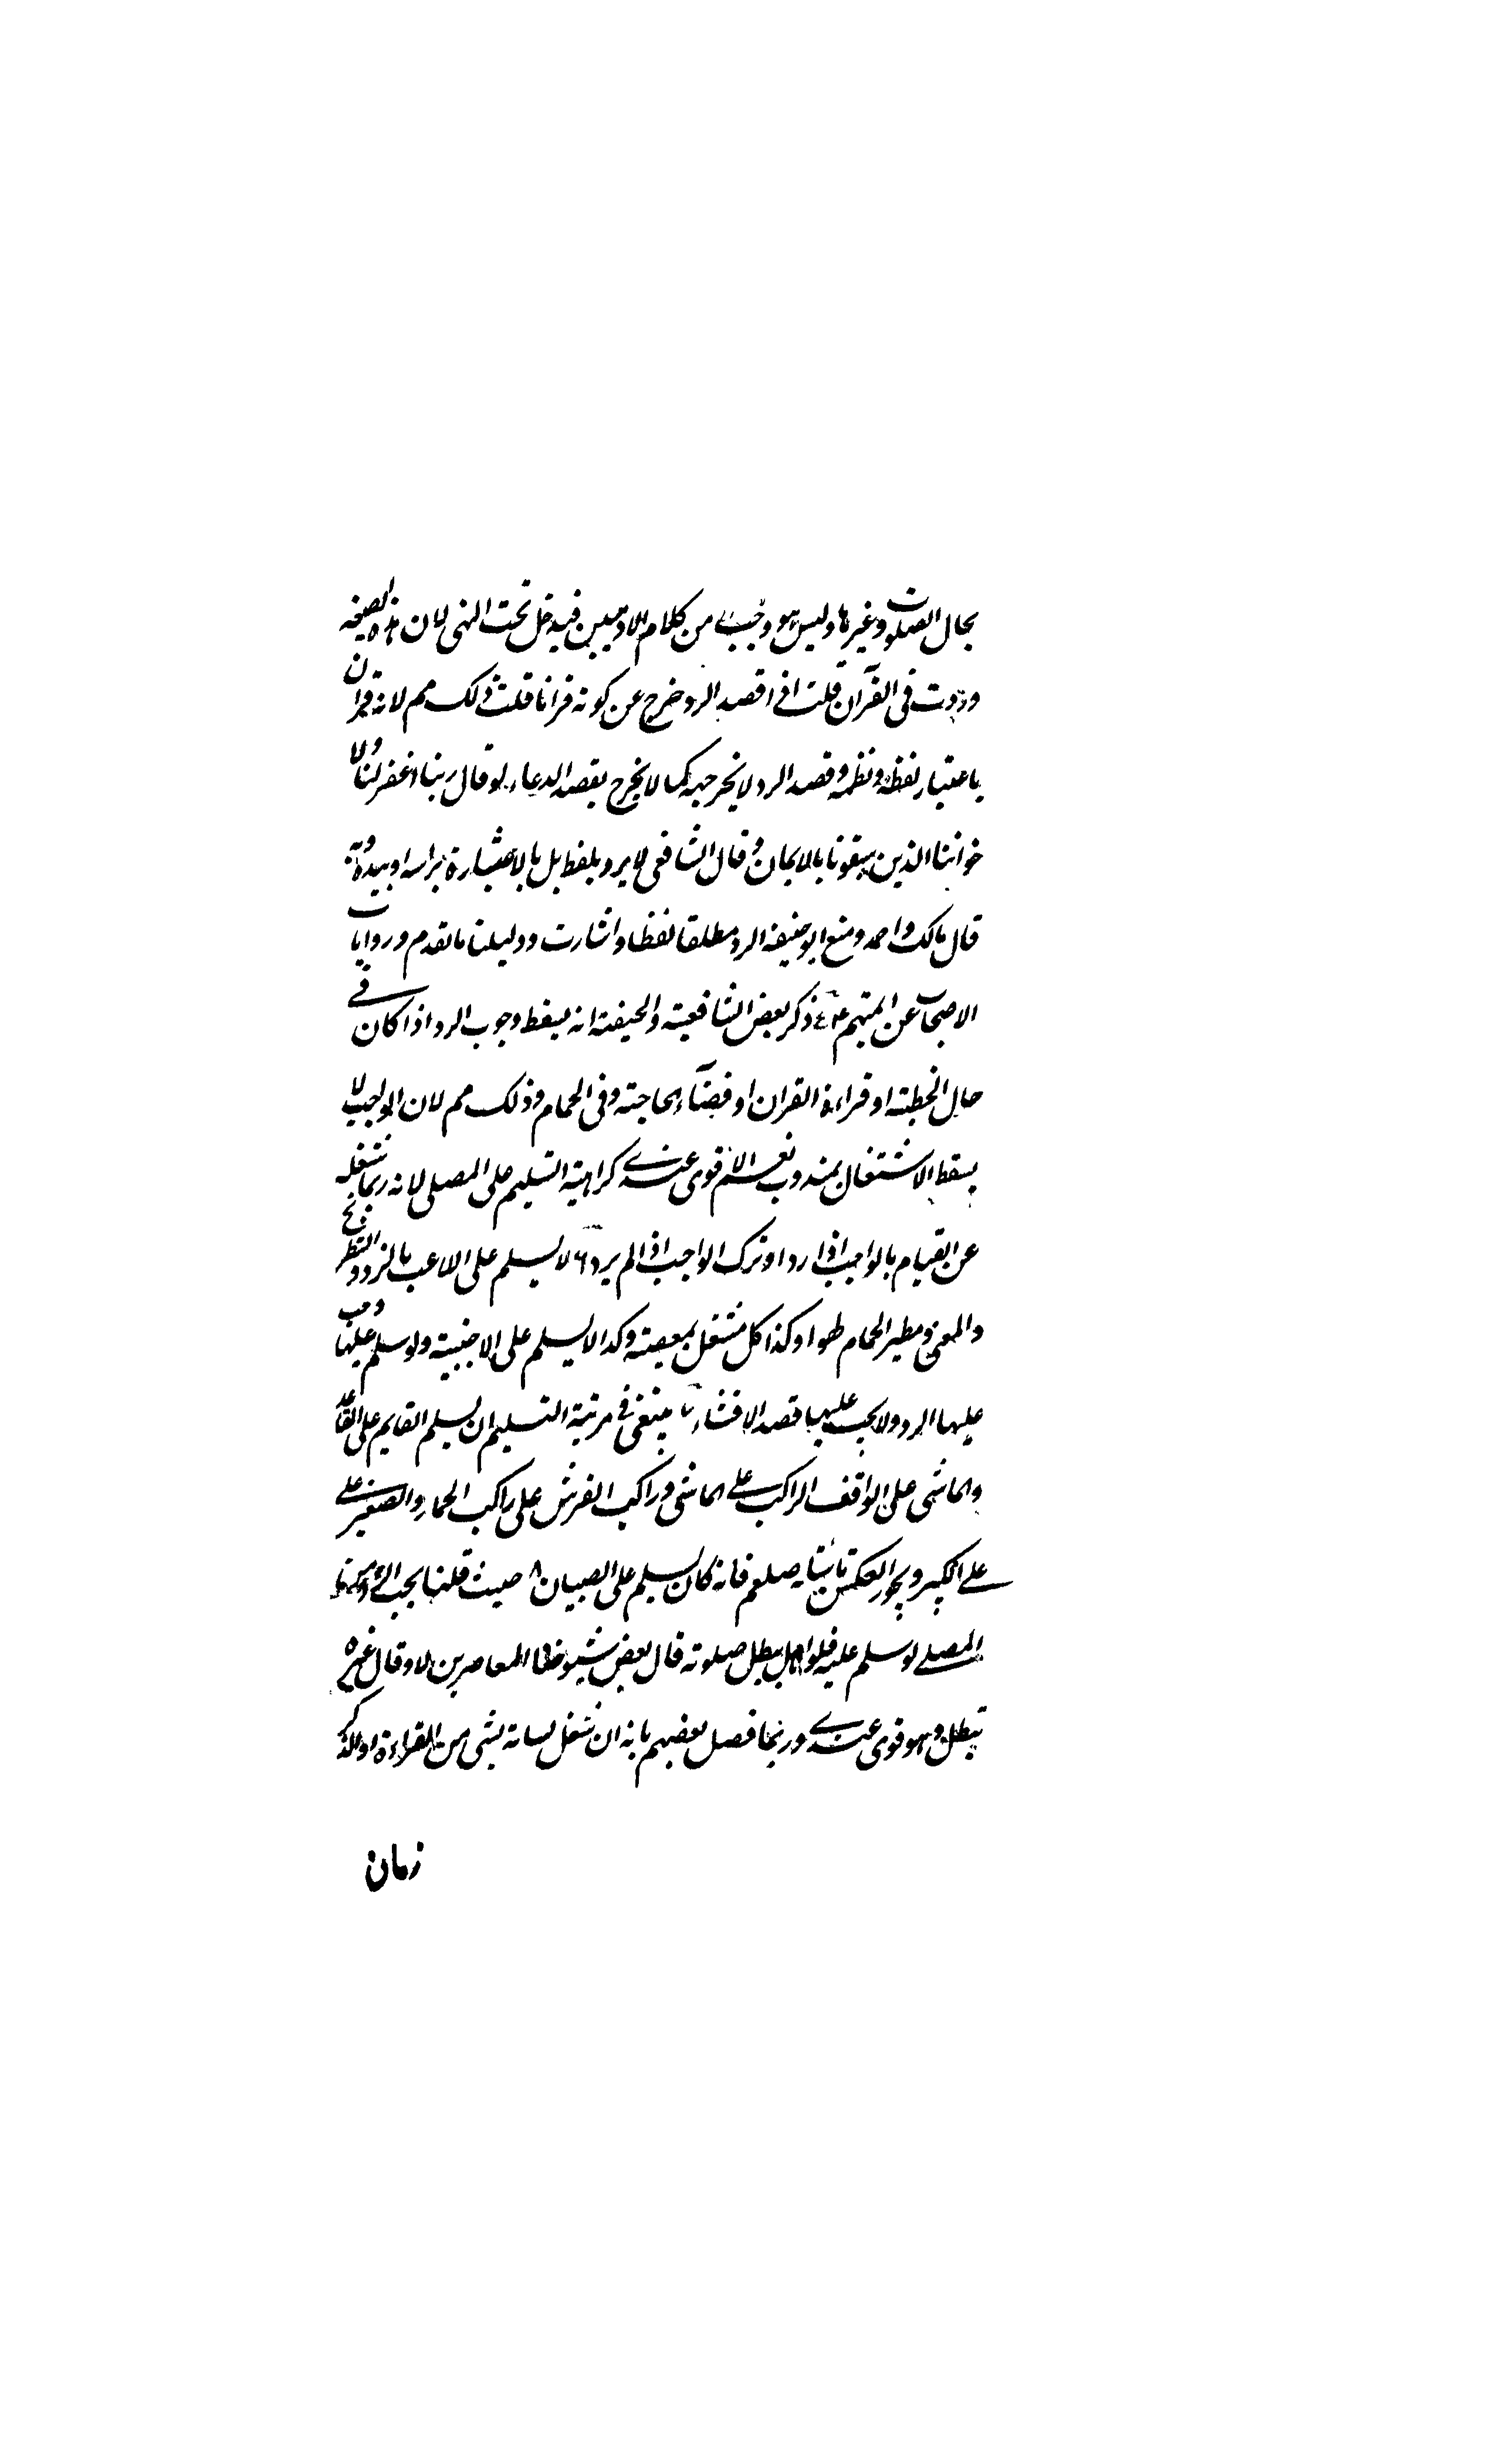 بحال الصلوت وغيرها وليس هو وجيب من كلام الادميين فيدخل تحت النهى لان هذه الصيغه
وردت فى القرآن قلت اذا قصد الرد خرج عن كونه قرانا قلت ذلك مم لانه قران
باعتبار لفظه ونظمه وقصد الرد لا يخرجه كما لا يخرج بقصد الدعاء لو قال ربنا اغفر لنا ولا
خواننا الذين سبقونا بالايمان و قال الشافعى لا يرد بلفظ بل بالاشارة براسه او بيده وبه
قال مالك واحمد ومنع ابو حنيفه الرد مطلقا لفظا واشارت ودليلنا ما تقدم وروايات
الاصحاب عن ائمتهم ع ٤ ذكر بعض الشافعية والحنيفة انه يسقط وجوب الرد اذا كان فى
حال الخطبة او قراءة القران او قضآء الحاجة وفى الحمام وذلك مم لان الواجب لا
يسقط الاشتغال بمندوب نعم الاقوى عندى كراهية التسليم على المصلى لانه ربما شغله
عن القيام بالواجب اذا رد او ترك الواجب اذا لم يرد ٦ لا يسلم على الاعب بالنرد والشطرنج
والمغنى ومطير الحمام لهوا وكذا كل مشتغل بمعصية وكذا لا يسلم على الاجنبية ولو سلم عليها وجب
عليها الرد ولا يجب عليهما قصد الافشاء ٧ ينبغى فى مرتبة التسليم ان يسلم القايم على القاعد
والماشى على الواقف الراكب على الماشى وراكب الفرس على راكب الحمار والصغير على
على الكبير ويجوز العكس تاسيا به صلعم فانه كان يسلم على الصبيان ٨ حيث قلنا يجب الرد
المصلى لو سلم عليه فلو اخل يبطل صلوته قال بعض شيوخنا المعاصرين لا وقال غيره
تبطل وهو قوى عندى وربما فصل بعضهم بانه ان شغل لسانه بشى من القراءة او الذكر
زمان